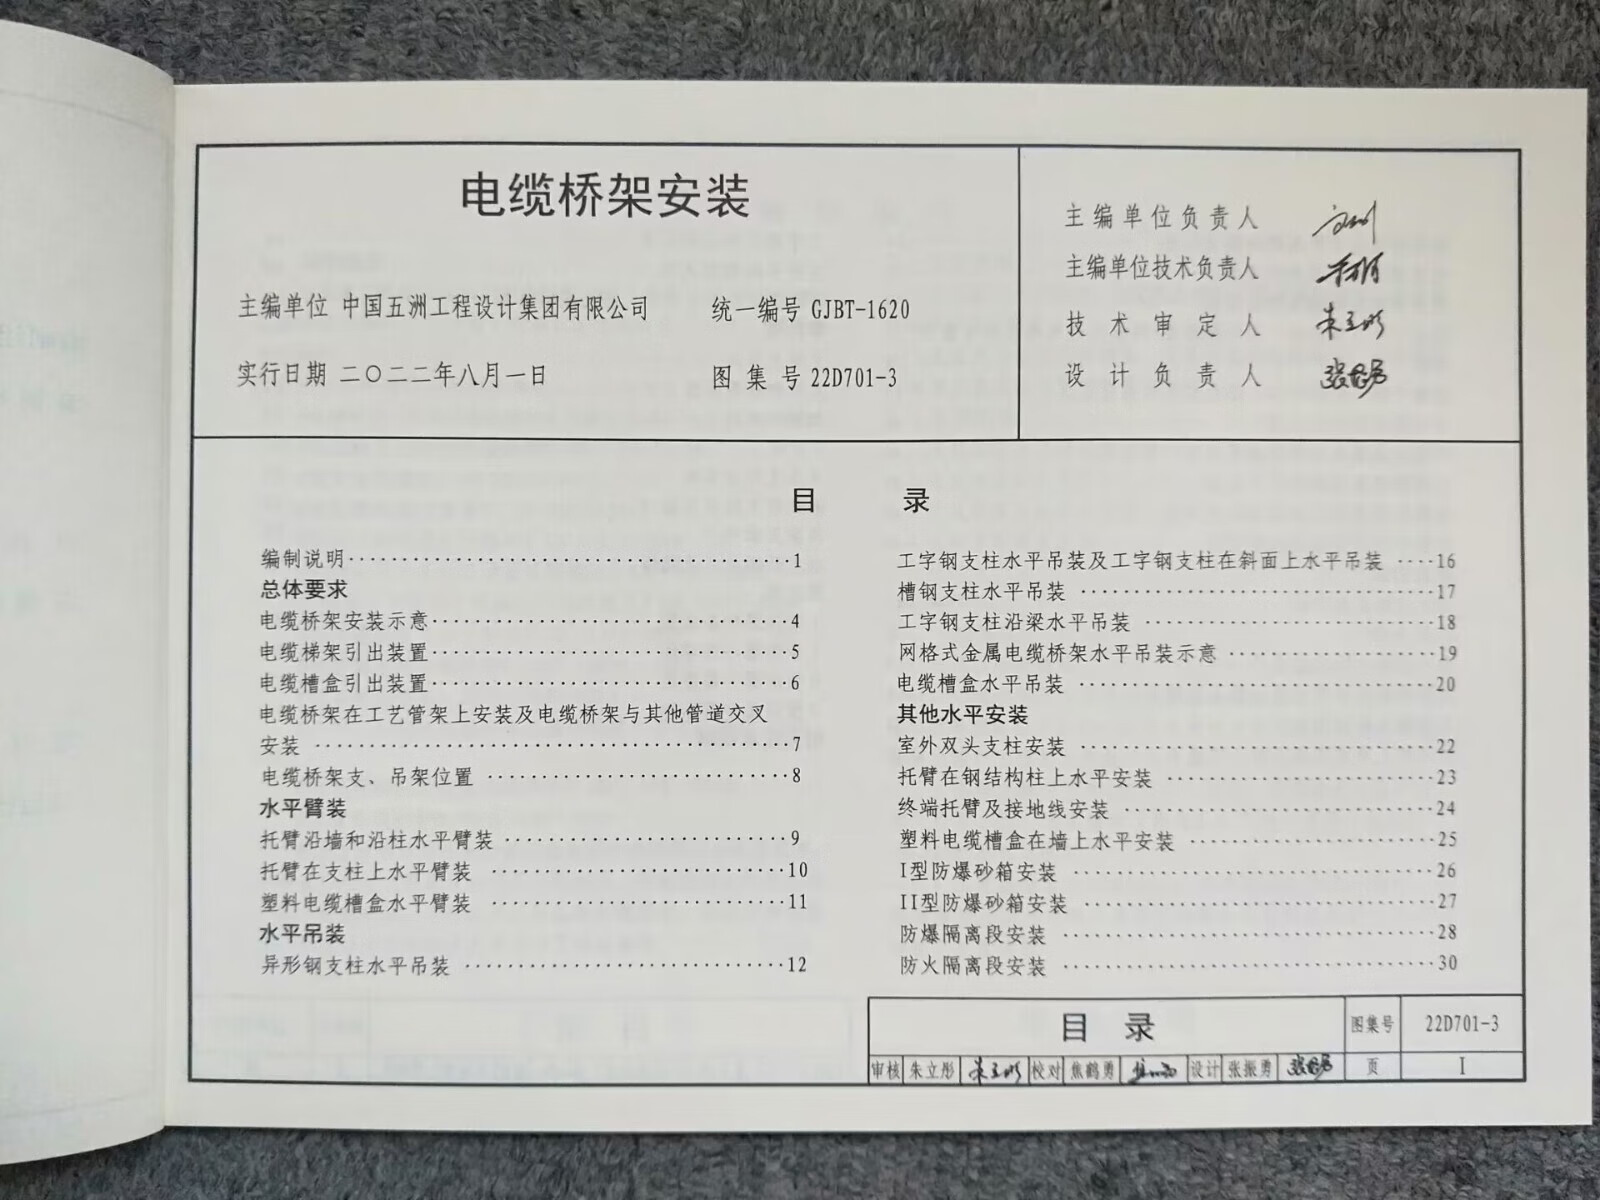 电缆桥架安装
主编单位 中国五洲工程设计集团有限公司 统一编号 GJBT-1620
实行日期 二〇二二年八月一日 图集号 22D701-3
主编单位负责人
主编单位技术负责人
技术审定人 朱立彤
设计负责人 张振勇
目 录
编制说明 1
总体要求
电缆桥架安装示意 4
电缆梯架引出装置 5
电缆槽盒引出装置 6
电缆桥架在工艺管架上安装及电缆桥架与其他管道交叉
安装 7
电缆桥架支、吊架位置 8
水平臂装
托臂沿墙和沿柱水平臂装 9
托臂在支柱上水平臂装 10
塑料电缆槽盒水平臂装 11
水平吊装
异形钢支柱水平吊装 12
工字钢支柱水平吊装及工字钢支柱在斜面上水平吊装 16
槽钢支柱水平吊装 17
工字钢支柱沿梁水平吊装 18
网格式金属电缆桥架水平吊装示意 19
电缆槽盒水平吊装 20
其他水平安装
室外双头支柱安装 22
托臂在钢结构柱上水平安装 23
终端托臂及接地线安装 24
塑料电缆槽盒在墙上水平安装 25
I型防爆砂箱安装 26
II型防爆砂箱安装 27
防爆隔离段安装 28
防火隔离段安装 30
目 录 图集号 22D701-3
审核 朱立彤 朱立彤 校对 焦鹤勇 设计 张振勇 张振勇 页 I